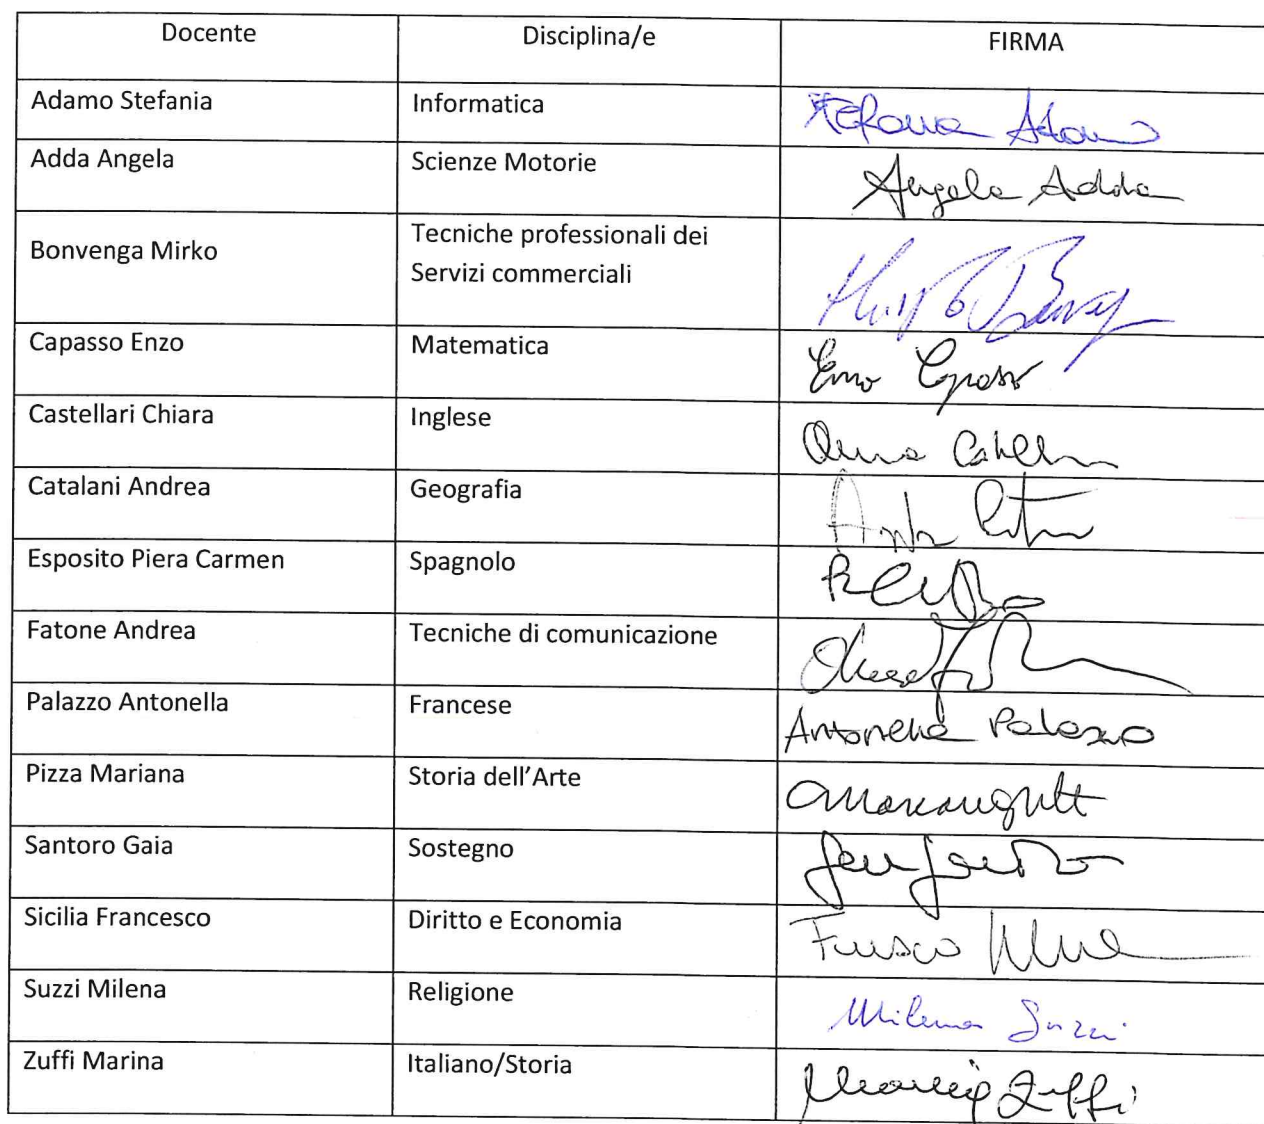 Docente Disciplina/e FIRMA
Adamo Stefania Informatica Stefania Adamo
Adda Angela Scienze Motorie Angela Adda
Bonvenga Mirko Tecniche professionali dei
Servizi commerciali
Capasso Enzo Matematica Enzo Capasso
Castellari Chiara Inglese
Catalani Andrea Geografia
Esposito Piera Carmen Spagnolo
Fatone Andrea Tecniche di comunicazione
Palazzo Antonella Francese Antonella Palazzo
Pizza Mariana Storia dell'Arte
Santoro Gaia Sostegno
Sicilia Francesco Diritto e Economia
Suzzi Milena Religione Milena Suzzi
Zuffi Marina Italiano/Storia Zuffi